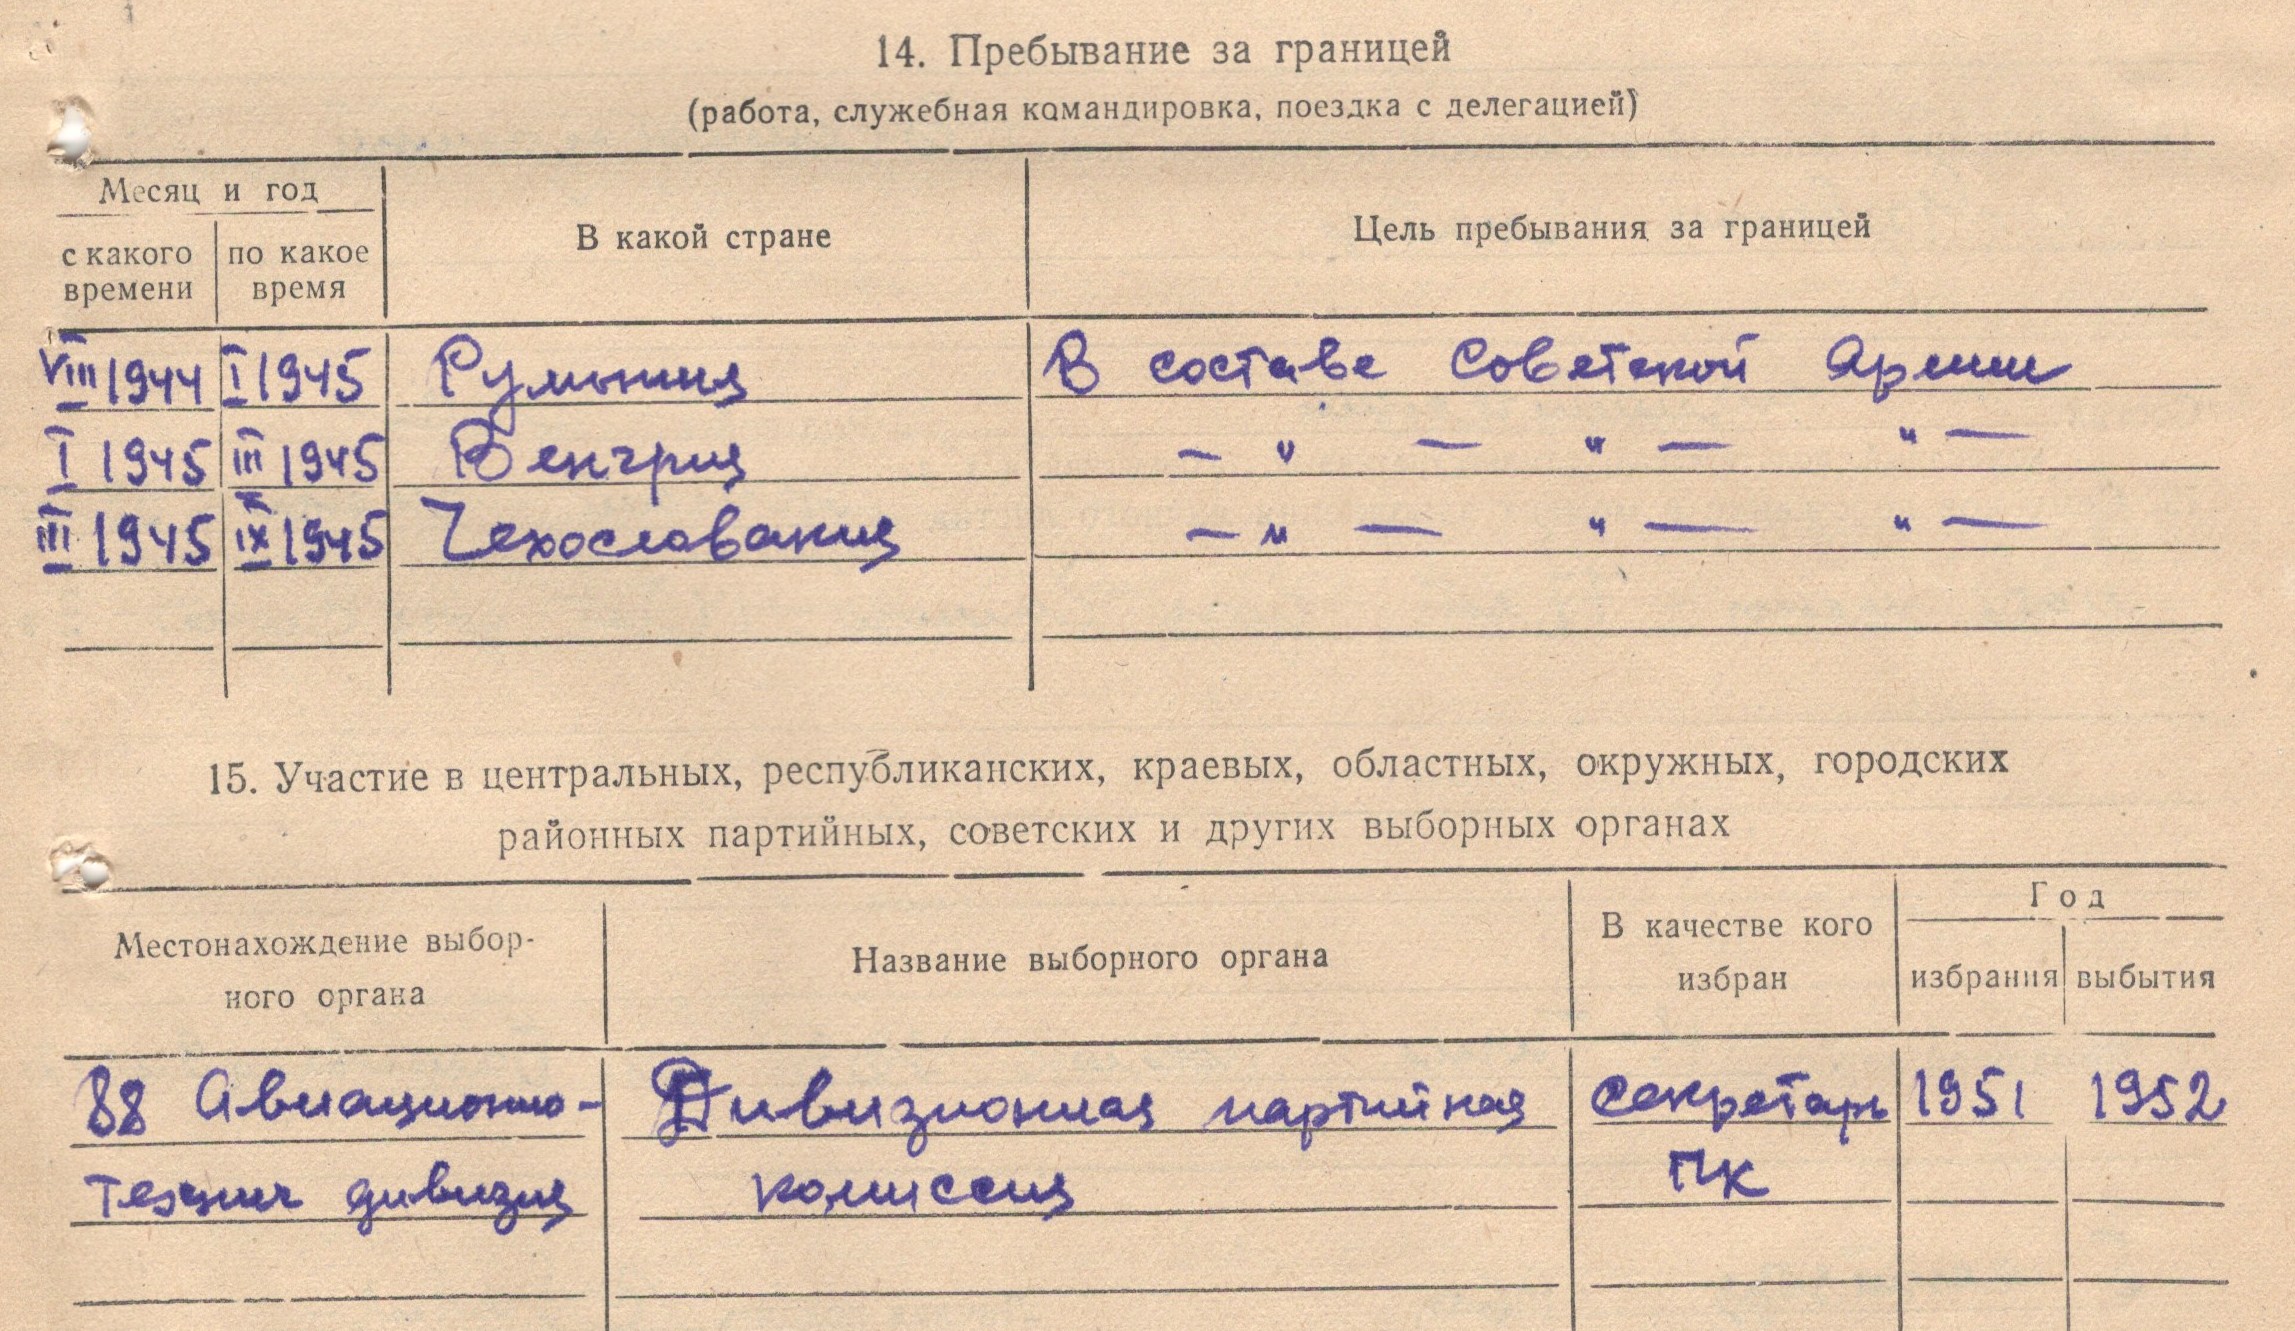 14. Пребывание за границей
(работа, служебная командировка, поездка с делегацией)
Месяц и год
с какого времени
по какое время
В какой стране
Цель пребывания за границей
VIII 1944 I 1945 Румыния В составе Советской Армии
I 1945 III 1945 Венгрия — " — " — " —
III 1945 IX 1945 Чехословакия — " — " — " —
15. Участие в центральных, республиканских, краевых, областных, окружных, городских
районных партийных, советских и других выборных органах
Местонахождение выбор-
ного органа
Название выборного органа
В качестве кого
избран
Год
избрания выбытия
88 Авиационно- Дивизионная партийная секретарь 1951 1952
технич дивизия комиссия ПК